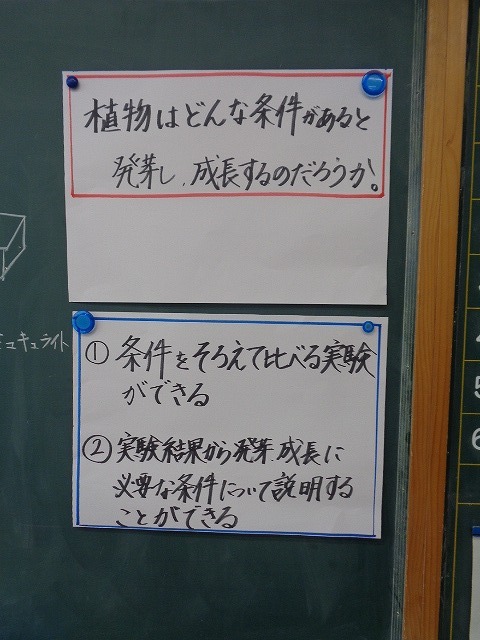 植物はどんな条件があると
発芽し、成長するのだろうか。
① 条件をそろえて比べる実験
ができる
② 実験結果から発芽、成長に
必要な条件について説明する
ことができる
ミュキュライト
5
6